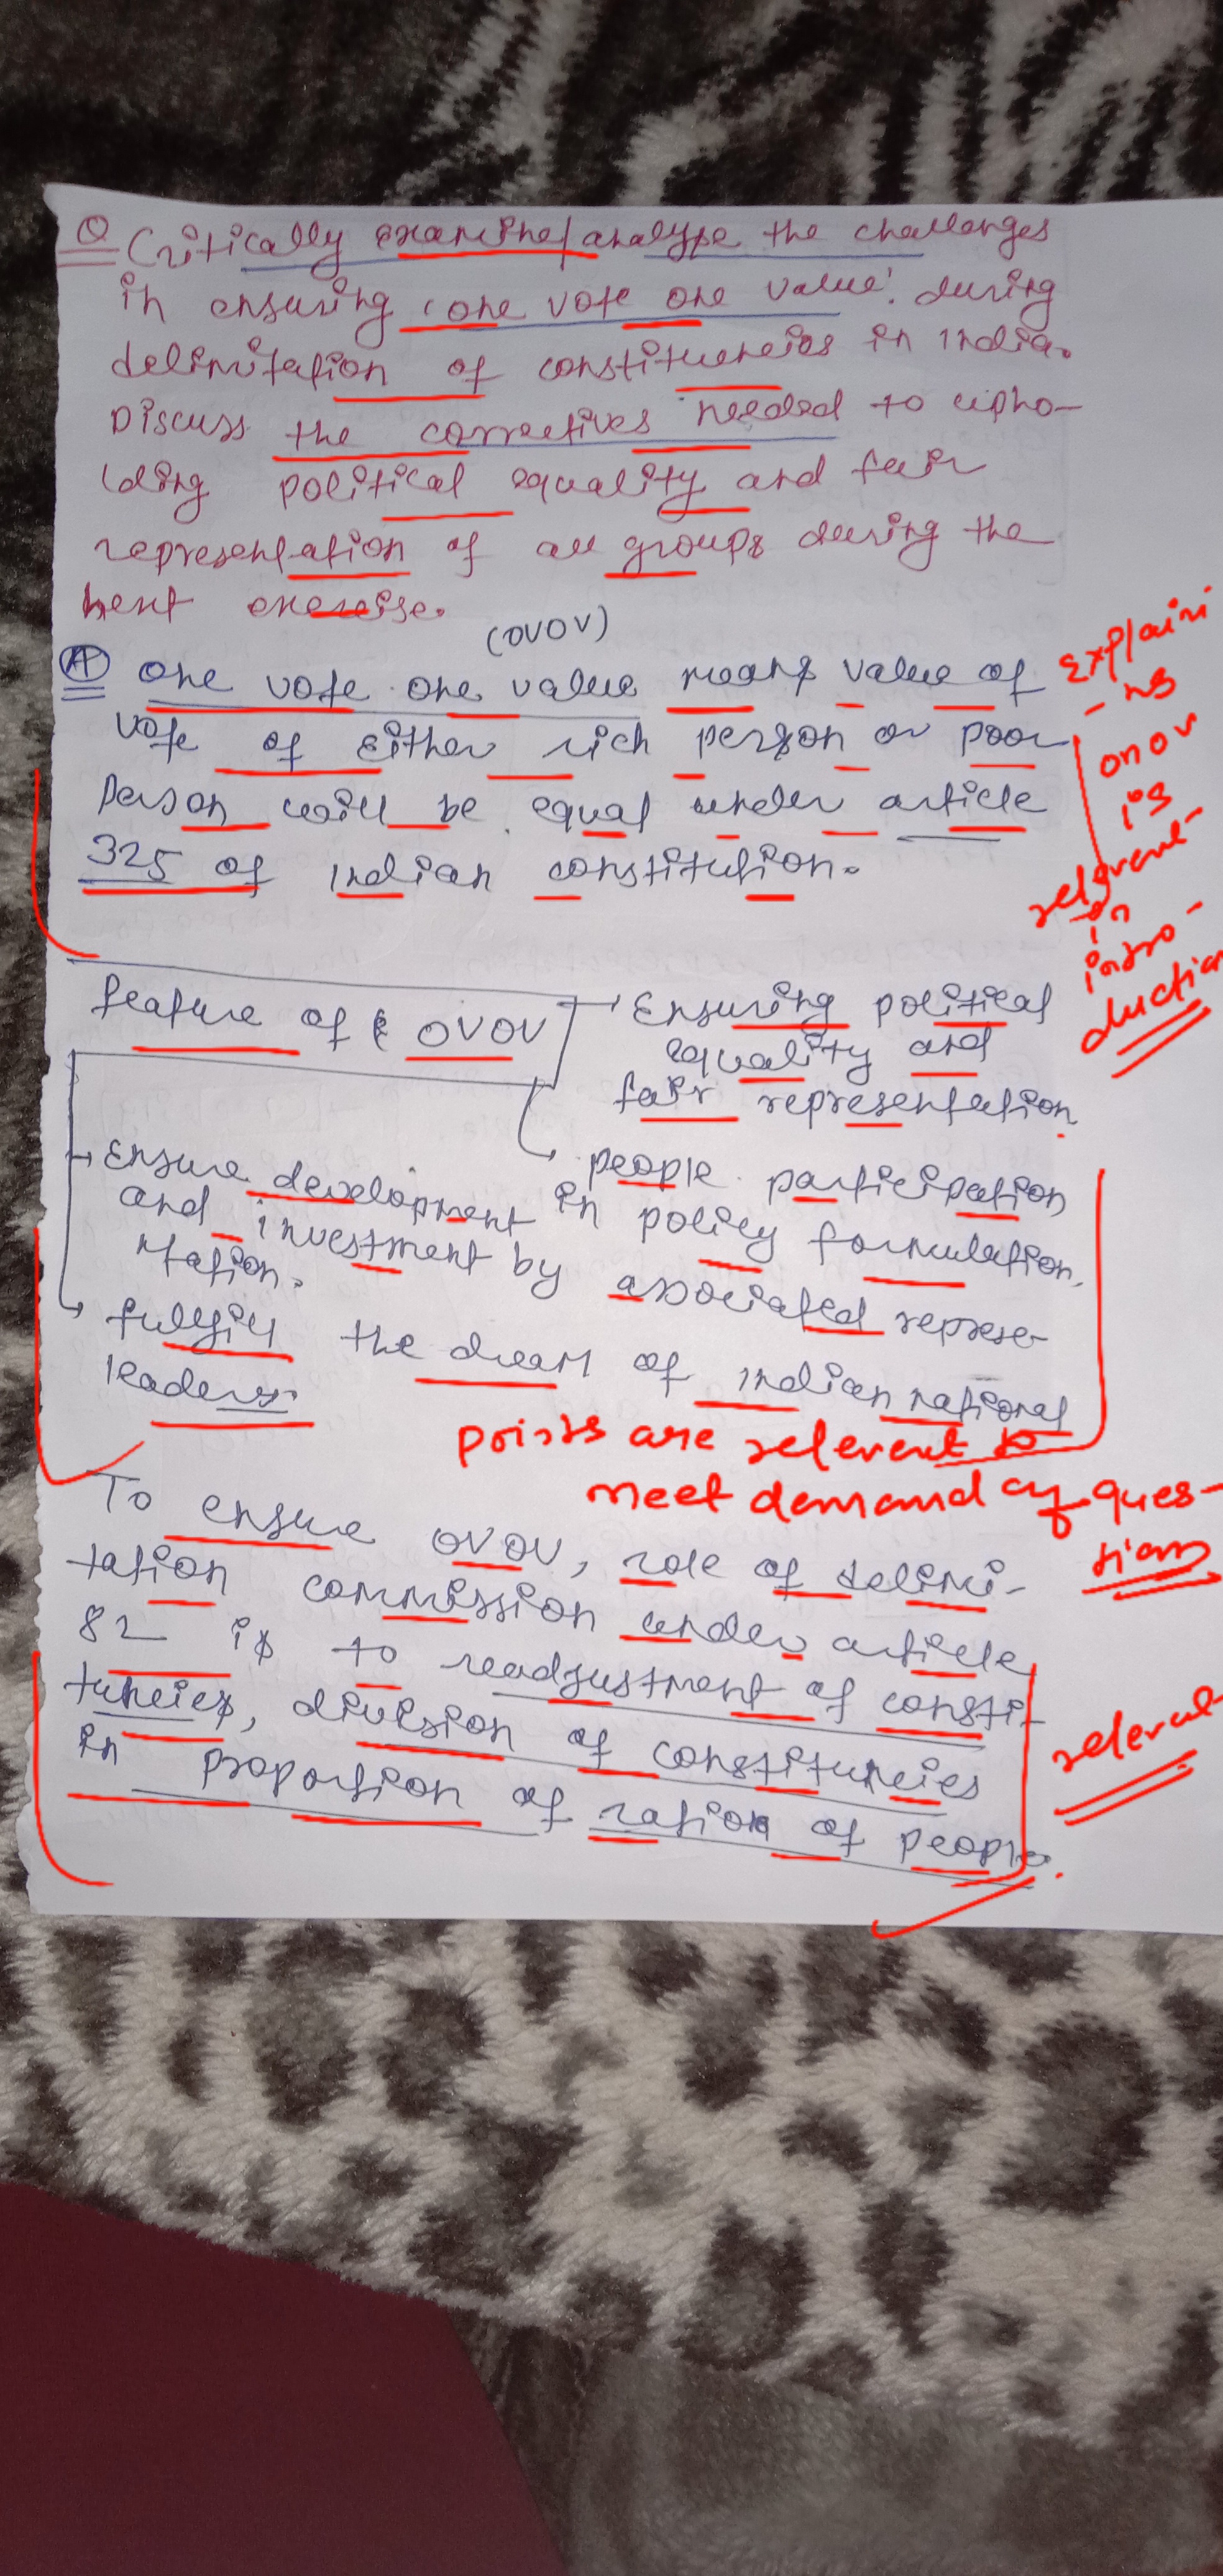 Q Critically examine/analyse the challenges
in ensuring 'one vote one value' during
delimitation of constituencies in India.
Discuss the correctives needed to upho-
lding political equality and fair
representation of all groups during the
next exercise.
(OVOV)
(A) one vote one value means value of
vote of either rich person or poor
person will be equal under article
325 of Indian constitution.
Explaini
-ng
ovov
is
relevent
in
intro-
duction
feature of OVOV
→ Ensuring political
equality and
fair representation.
→ people participation
in policy formulation.
→ Ensure development
and investment by associated represe-
ntation.
→ fullfill the dream of Indian national
leaders.
points are relevent to
meet demand of ques-
tions
To ensure OVOV, role of delimi-
tation commission under article
82 is to readjustment of consti-
tuncies, division of constituncies
in proportion of ration of people.
relevent